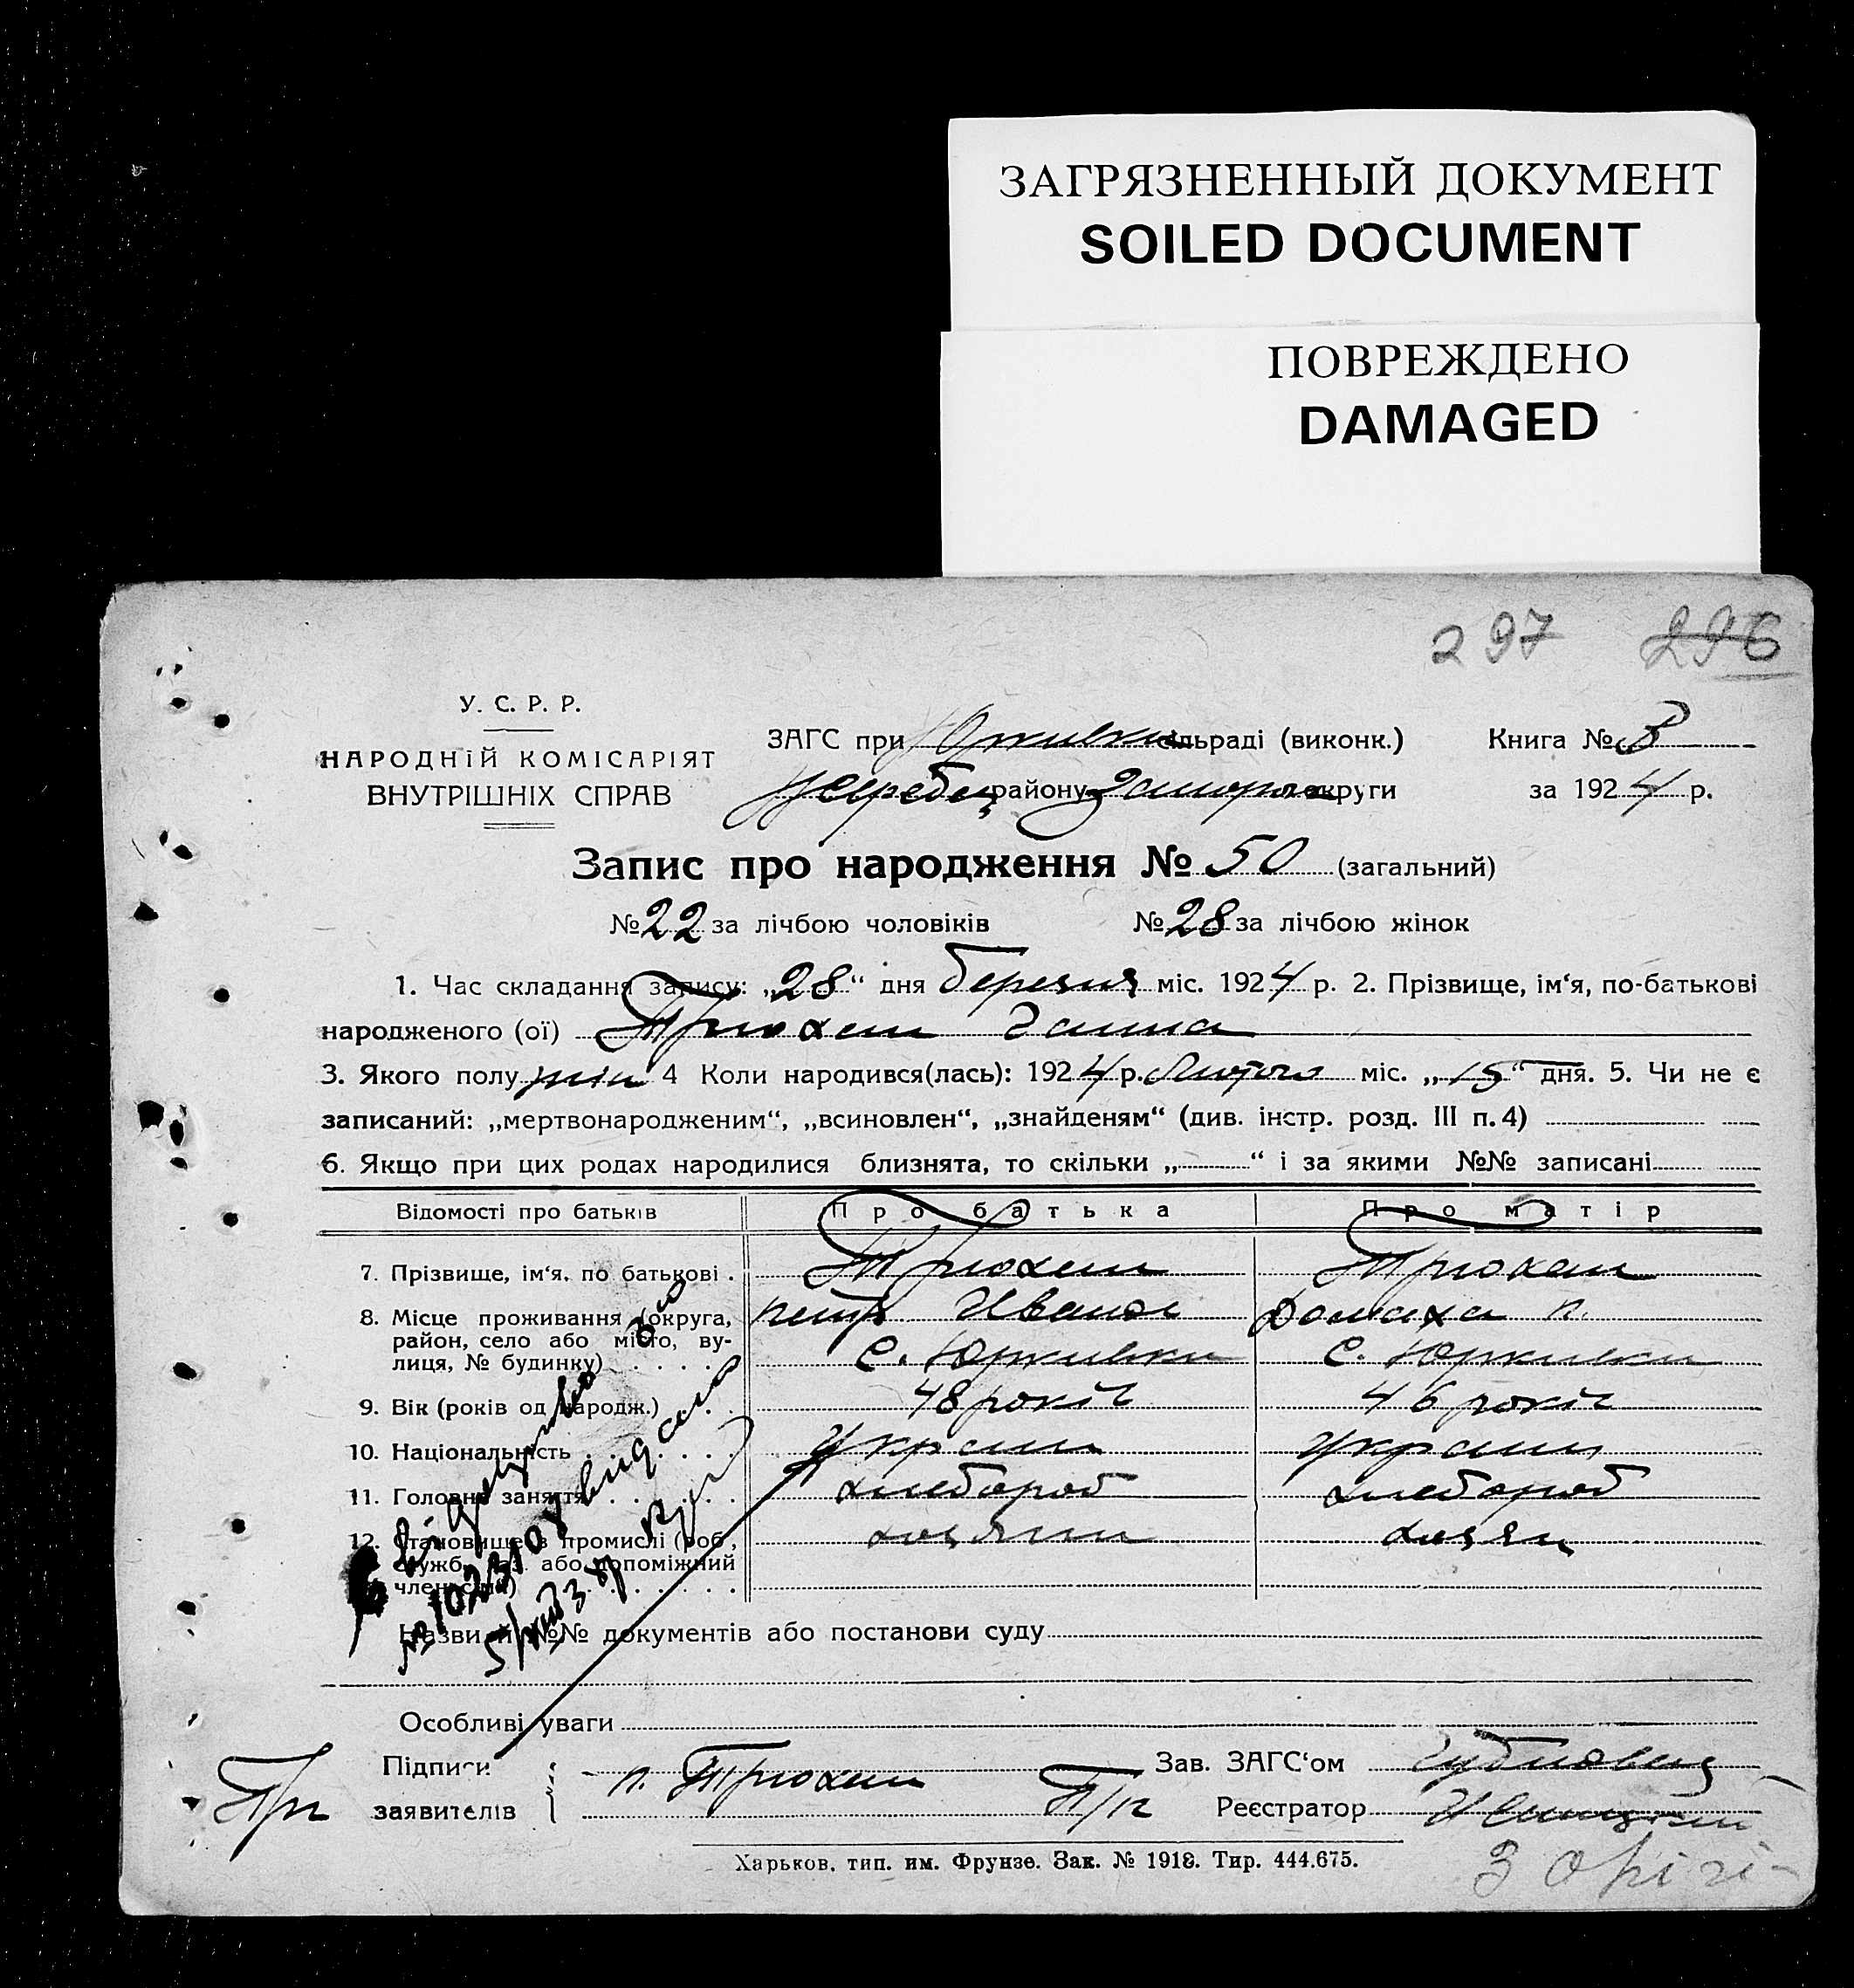 ЗАГРЯЗНЕННЫЙ ДОКУМЕНТ
SOILED DOCUMENT
ПОВРЕЖДЕНО
DAMAGED
297 296
У. С. Р. Р.
НАРОДНІЙ КОМІСАРІЯТ
ВНУТРІШНІХ СПРАВ
ЗАГС при Юркивки сільраді (виконк.) Книга №
Жеребец району Запорож округи за 1924 р.
Запис про народження № 50 (загальний)
№ 22 за лічбою чоловіків № 28 за лічбою жінок
1. Час складання запису: „28“ дня березня міс. 1924 р. 2. Прізвище, ім‘я, по-батькові
народженого (ої) Трюхан Ганна
3. Якого полу жін 4 Коли народився(лась): 1924 р. Лютого міс. „15“ дня. 5. Чи не є
записаний: „мертвонародженим“, „всиновлен“, „знайденям“ (див. інстр. розд. III п. 4)
6. Якщо при цих родах народилися близнята, то скільки „ “ і за якими №№ записані
Відомості про батьків Про батька Про матір
7. Прізвище, ім‘я, по батькові . Трюхан Трюхан
8. Місце проживання (округа, Петр Иванов Домаха п.
район, село або місто, ву-
лиця, № будинку) . . . . . с. Юркивки с. Юркивки
9. Вік (років од народж.) . . 48 років 46 років
10. Національність . . . . . Україн Україн
11. Головне заняття . . . . . хлебороб хлебороб
12. Становище в промислі (роб., хозяин хозяи
служб., хаз. або допоміжний
член сім‘ї) . . . . . . .
Назви й №№ документів або постанови суду
Особливі уваги
Підписи п. Трюхан Зав. ЗАГС‘ом
заявителів Реєстратор
Харьков, тип. им. Фрунзе. Зак. № 1918. Тир. 444.675.